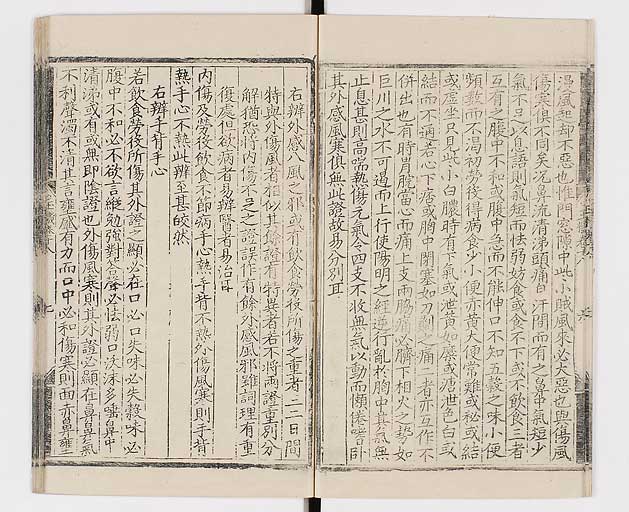 漫風起却不惡也惟門窓隙中些小賊風來必大惡也與傷風
傷寒俱不同矣况鼻流清涕頭痛自汗間而有之鼻中氣短少
氣不足以息語則氣短而怯弱妨食或食不下或不飮食三者
互有之腹中不和或腹中急而不能伸口不知五穀之味小便
頻數而不渴初勞役得病食少小便赤黃大便常難或秘或結
或虛坐只見些小白膿時有下氣或泄黃如糜或溏泄色白或
結而不通若心下痞或胸中閉塞如刀劙之痛二者亦互作不
併出也有時胃脘當心而痛上支兩脇痛必臍下相火之勢如
巨川之水不可遏而上行使陽明之經逆行亂於胸中其氣無
止息甚則高喘熱傷元氣令四支不收無氣以動而懶倦嗜卧
其外感風寒俱無此證故易分別耳
右辨外感八風之邪或有飮食勞役所傷之重者二三日間
特與外傷風者相似其餘證有特異者若不將兩證重別分
解猶恐將內傷不足之證誤作有餘外感風邪雖詞理有重
復處但欲病者易辨醫者易治耳
內傷及勞役飮食不節病手心熱手背不熱外傷風寒則手背
熱手心不熱此辨至甚皎然
右辨手背手心
若飮食勞役所傷其外證之顯必在口必口失味必失穀味必
腹中不和必不欲言縱勉強對答聲必怯弱口沃沫多唾鼻中
清涕或有或無即陰證也外傷風寒則其外證必顯在鼻鼻氣
不利聲濁不清其言壅盛有力而口中必和傷寒則面赤鼻壅